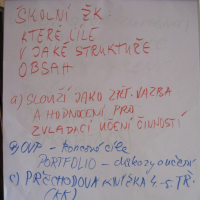 ŠKOLNÍ ŽK
KTERÉ CÍLE
V JAKÉ STRUKTUŘE
OBSAH
a) SLOUŽÍ JAKO ZPĚT. VAZBA
A HODNOCENÍ PRO
ZVLÁDACÍ UČENÍ ČINNOSTÍ
b) OVP - koncové cíle
PORTFOLIO - důkazy o učení
c) PŘECHODOVÁ KNÍŽKA 4.-5. TŘ.